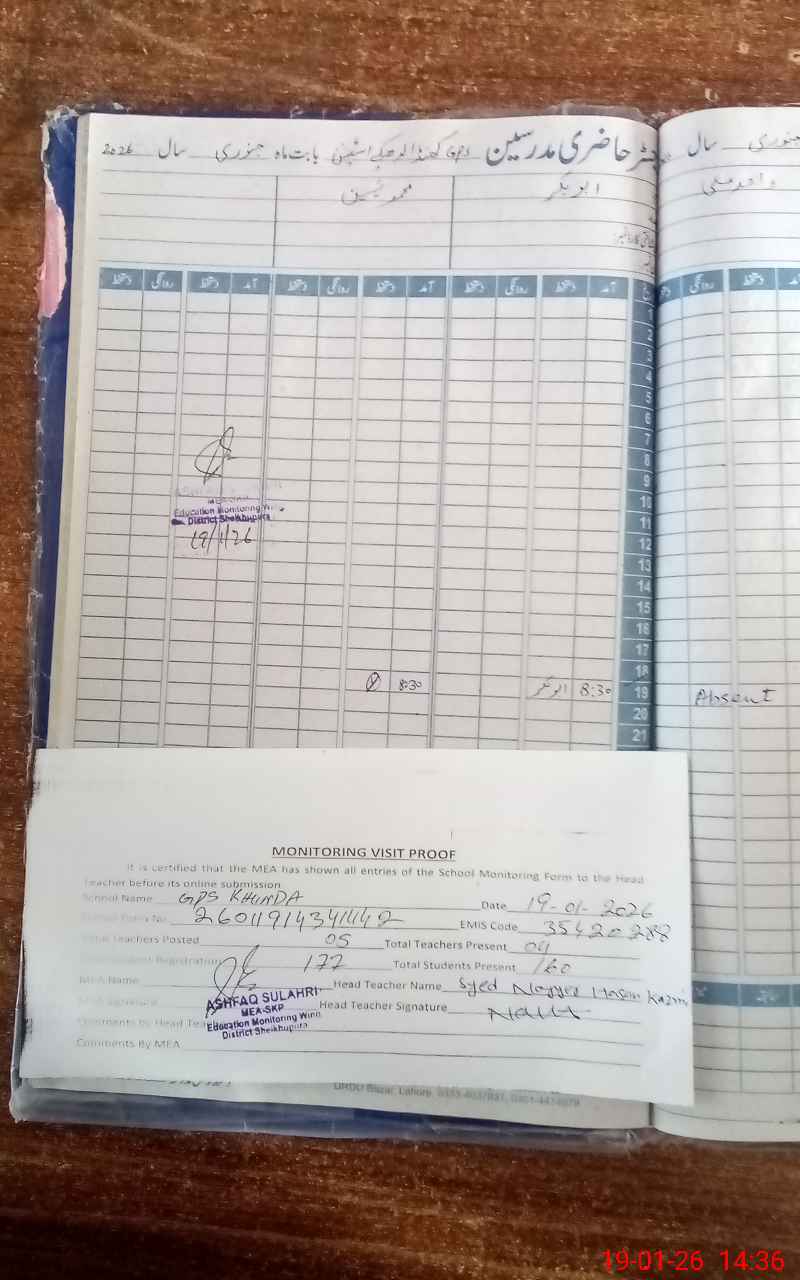 رجسٹر حاضری مدرسین GPS کھنڈا بابت ماہ جنوری سال 2026
جنوری سال
ابوبکر
واحد علی
آمد دستخط روانگی دستخط آمد دستخط روانگی دستخط آمد دستخط روانگی دستخط
1
2
3
4
5
6
7
8
9
10
11
12
13
14
15
16
17
18
19 8:30 ابوبکر 8:30
Absent
20
21
Education Monitoring Wi
District Sheikhupura
19/1/26
MONITORING VISIT PROOF
It is certified that the MEA has shown all entries of the School Monitoring Form to the Head
Teacher before its online submission
School Name GPS KHUNDA Date 19-01-2026
EMIS Code 35420288
Total Teachers Posted 05 Total Teachers Present 04
Student Registration 177 Total Students Present 160
MEA Name Head Teacher Name Syed Nayyer Hasan Kazmi
MEA Signature Head Teacher Signature
ASHFAQ SULAHRI
MEA-SKP
Education Monitoring Wing
District Sheikhupura
Comments by Head Teacher
Comments By MEA
URDU Bazar, Lahore.
19-01-26 14:36